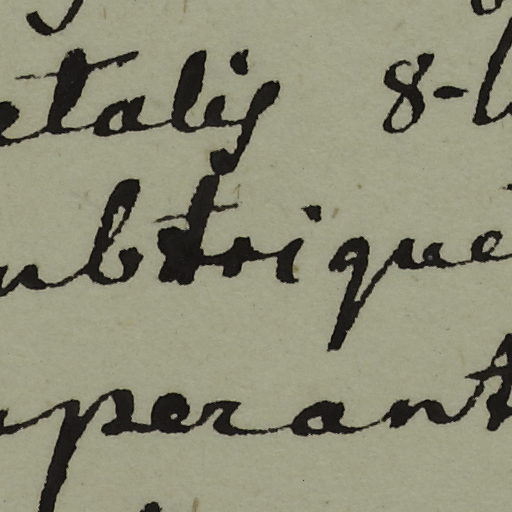 etalis 8-l
ubtrique
uperant